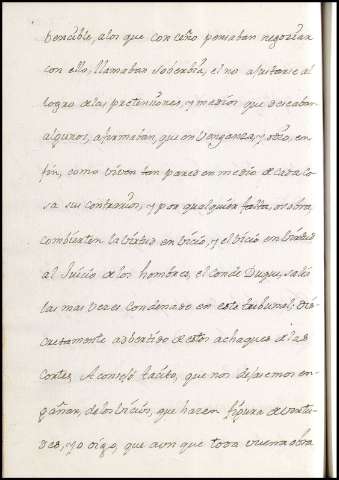 bencible, a los que con ceño pensaban negoziar
con ello, llamaban soberbia, el no ajustarse al
logro de las pretensiones, y medios que deseaban
algunos, afirmaban, que en venganza, y odio, en
fin, como viven tan pared en medio de cada co
sa sus contrarios, y por qualquier falta, o sobra
combierten la virtud en vicio, y el vicio en virtud
al Juicio de los hombres, el conde Duque, salio
las mas veces condenado en este tribunal; dis
cretamente adbertido de estos achaques de las
Cortes. Aconsejó tacito, que nos dejasemos en
gañar, de los vicios, que hazen figura de virtu
des, y yo digo, que aun que toda buena obra